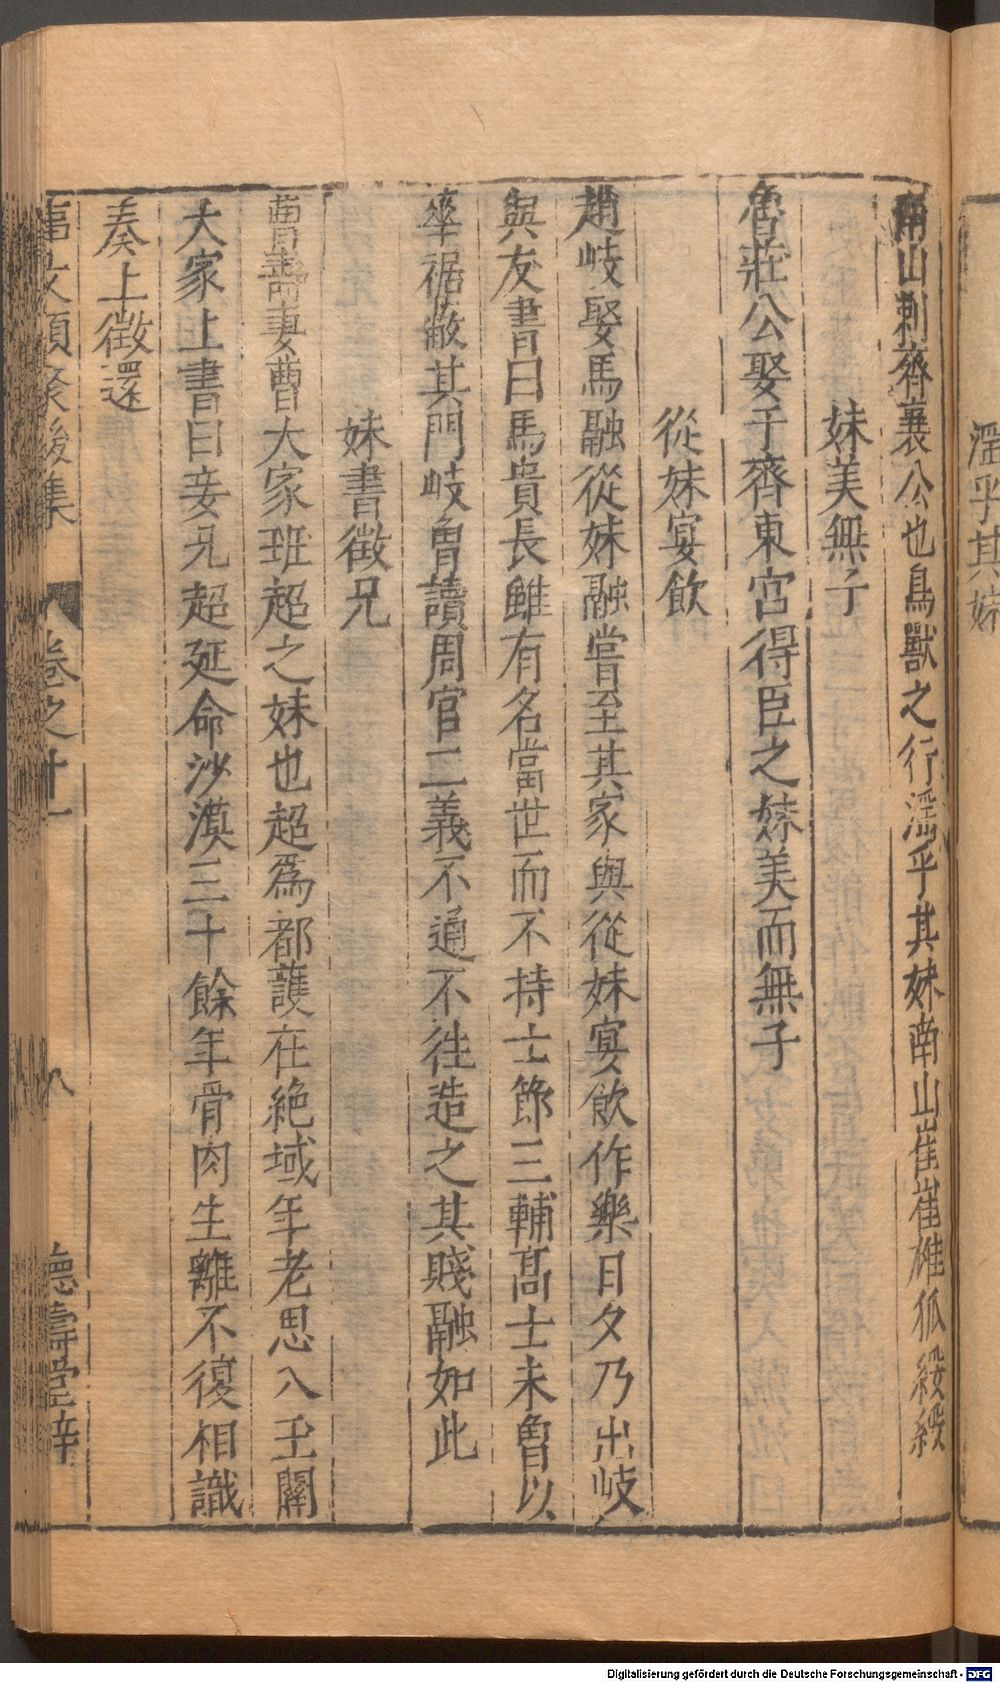 淫乎其妹
南山刺齊襄公也鳥獸之行淫乎其妹南山崔崔雄狐綏綏
妹美無子
魯莊公娶于齊東宮得臣之妹美而無子
從妹宴飲
趙岐娶馬融從妹融嘗至其家與從妹宴飲作樂日夕乃出岐
與友書曰馬貴長雖有名當世而不持士節三輔高士未曾以
率裾蔽其門岐曾讀周官二義不通不徃造之其賤融如此
妹書徵兄
曹壽妻曹大家班超之妹也超爲都護在絶域年老思入玉關
大家上書曰妾兄超延命沙漠三十餘年骨肉生離不復相識
奏上徵還
事文類聚後集 卷之十一 八 德壽堂梓
Digitalisierung gefördert durch die Deutsche Forschungsgemeinschaft - DFG